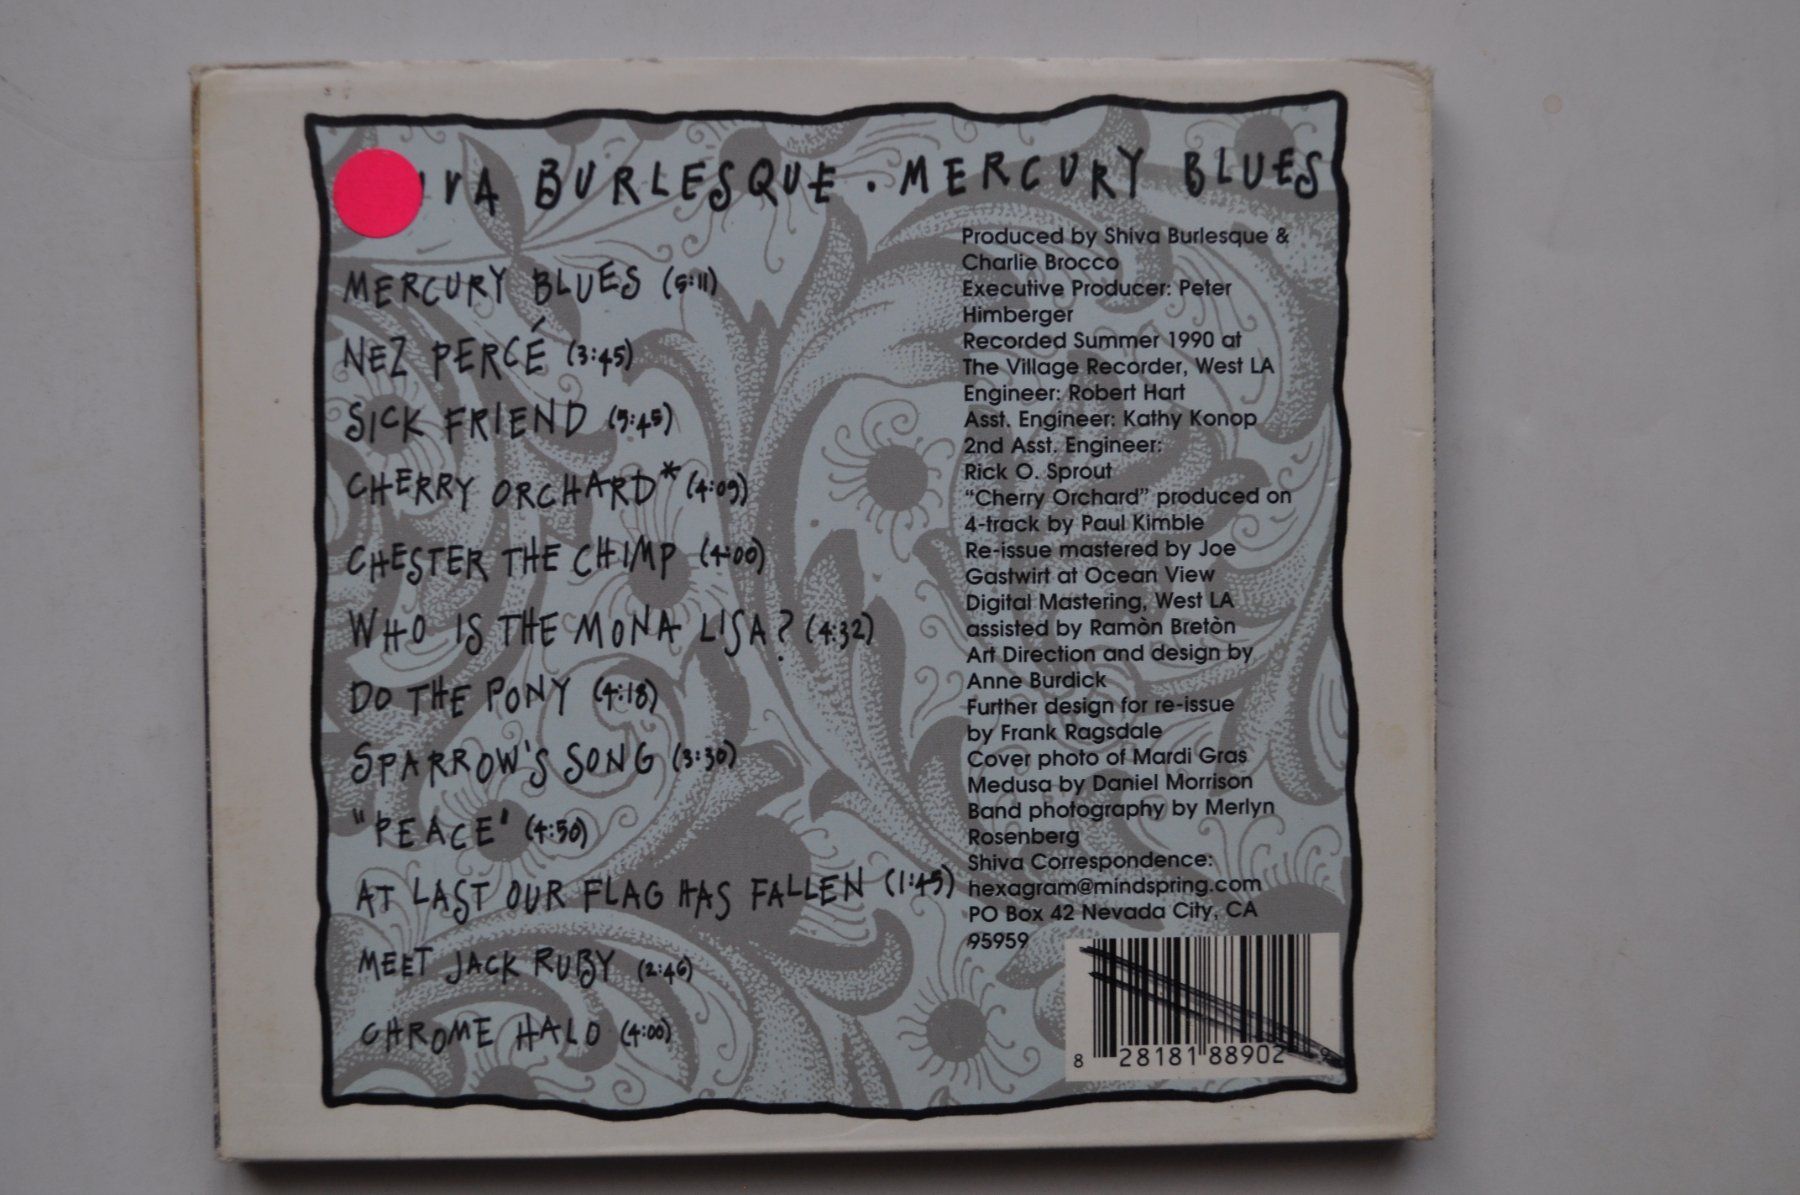 IVA BURLESQUE . MERCURY BLUES
MERCURY BLUES (5:11)
NEZ PERCÉ (3:45)
SICK FRIEND (5:45)
CHERRY ORCHARD* (4:09)
CHESTER THE CHIMP (4:00)
WHO IS THE MONA LISA? (4:32)
DO THE PONY (4:18)
SPARROW'S SONG (3:30)
"PEACE" (4:50)
AT LAST OUR FLAG HAS FALLEN (1:45)
MEET JACK RUBY (2:46)
CHROME HALO (4:00)
Produced by Shiva Burlesque &
Charlie Brocco
Executive Producer: Peter
Himberger
Recorded Summer 1990 at
The Village Recorder, West LA
Engineer: Robert Hart
Asst. Engineer: Kathy Konop
2nd Asst. Engineer:
Rick O. Sprout
"Cherry Orchard" produced on
4-track by Paul Kimble
Re-issue mastered by Joe
Gastwirt at Ocean View
Digital Mastering, West LA
assisted by Ramòn Bretòn
Art Direction and design by
Anne Burdick
Further design for re-issue
by Frank Ragsdale
Cover photo of Mardi Gras
Medusa by Daniel Morrison
Band photography by Merlyn
Rosenberg
Shiva Correspondence:
hexagram@mindspring.com
PO Box 42 Nevada City, CA
95959
8 28181 88902 9